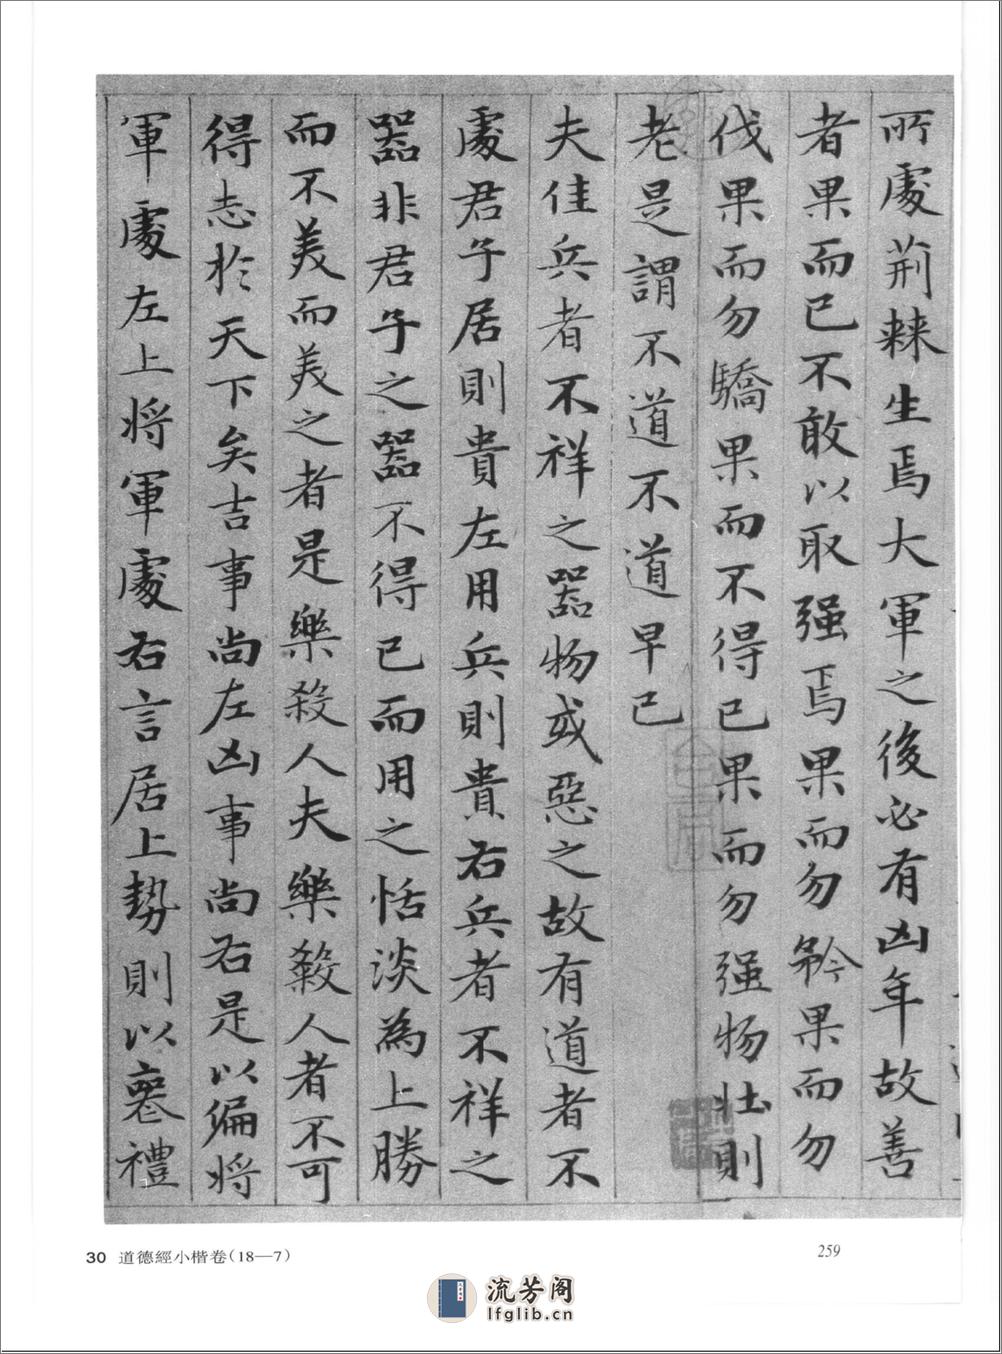 所處荊棘生焉大軍之後必有凶年故善
者果而已不敢以取强焉果而勿矜果而勿
伐果而勿驕果而不得已果而勿强物壯則
老是謂不道不道早已
夫佳兵者不祥之器物或惡之故有道者不
處君子居則貴左用兵則貴右兵者不祥之
器非君子之器不得已而用之恬淡為上勝
而不美而美之者是樂殺人夫樂殺人者不可
得志於天下矣吉事尚左凶事尚右是以偏將
軍處左上將軍處右言居上勢則以喪禮
30 道德經小楷卷(18—7)
259
流芳阁
lfglib.cn